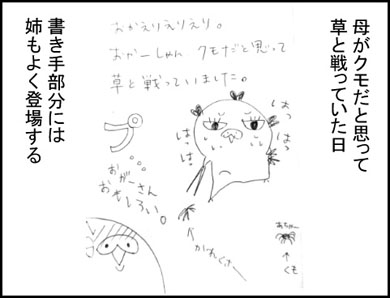 母がクモだと思って
草と戦っていた日
おかえりえりえり。
おかーしゃん クモだと思って
草と戦っていました。
はっ
はっ
はぁ
はぁ
プ
おがーさん
おもしろい。
かれくさー
あちゃー
くも
書き手部分には
姉もよく登場する